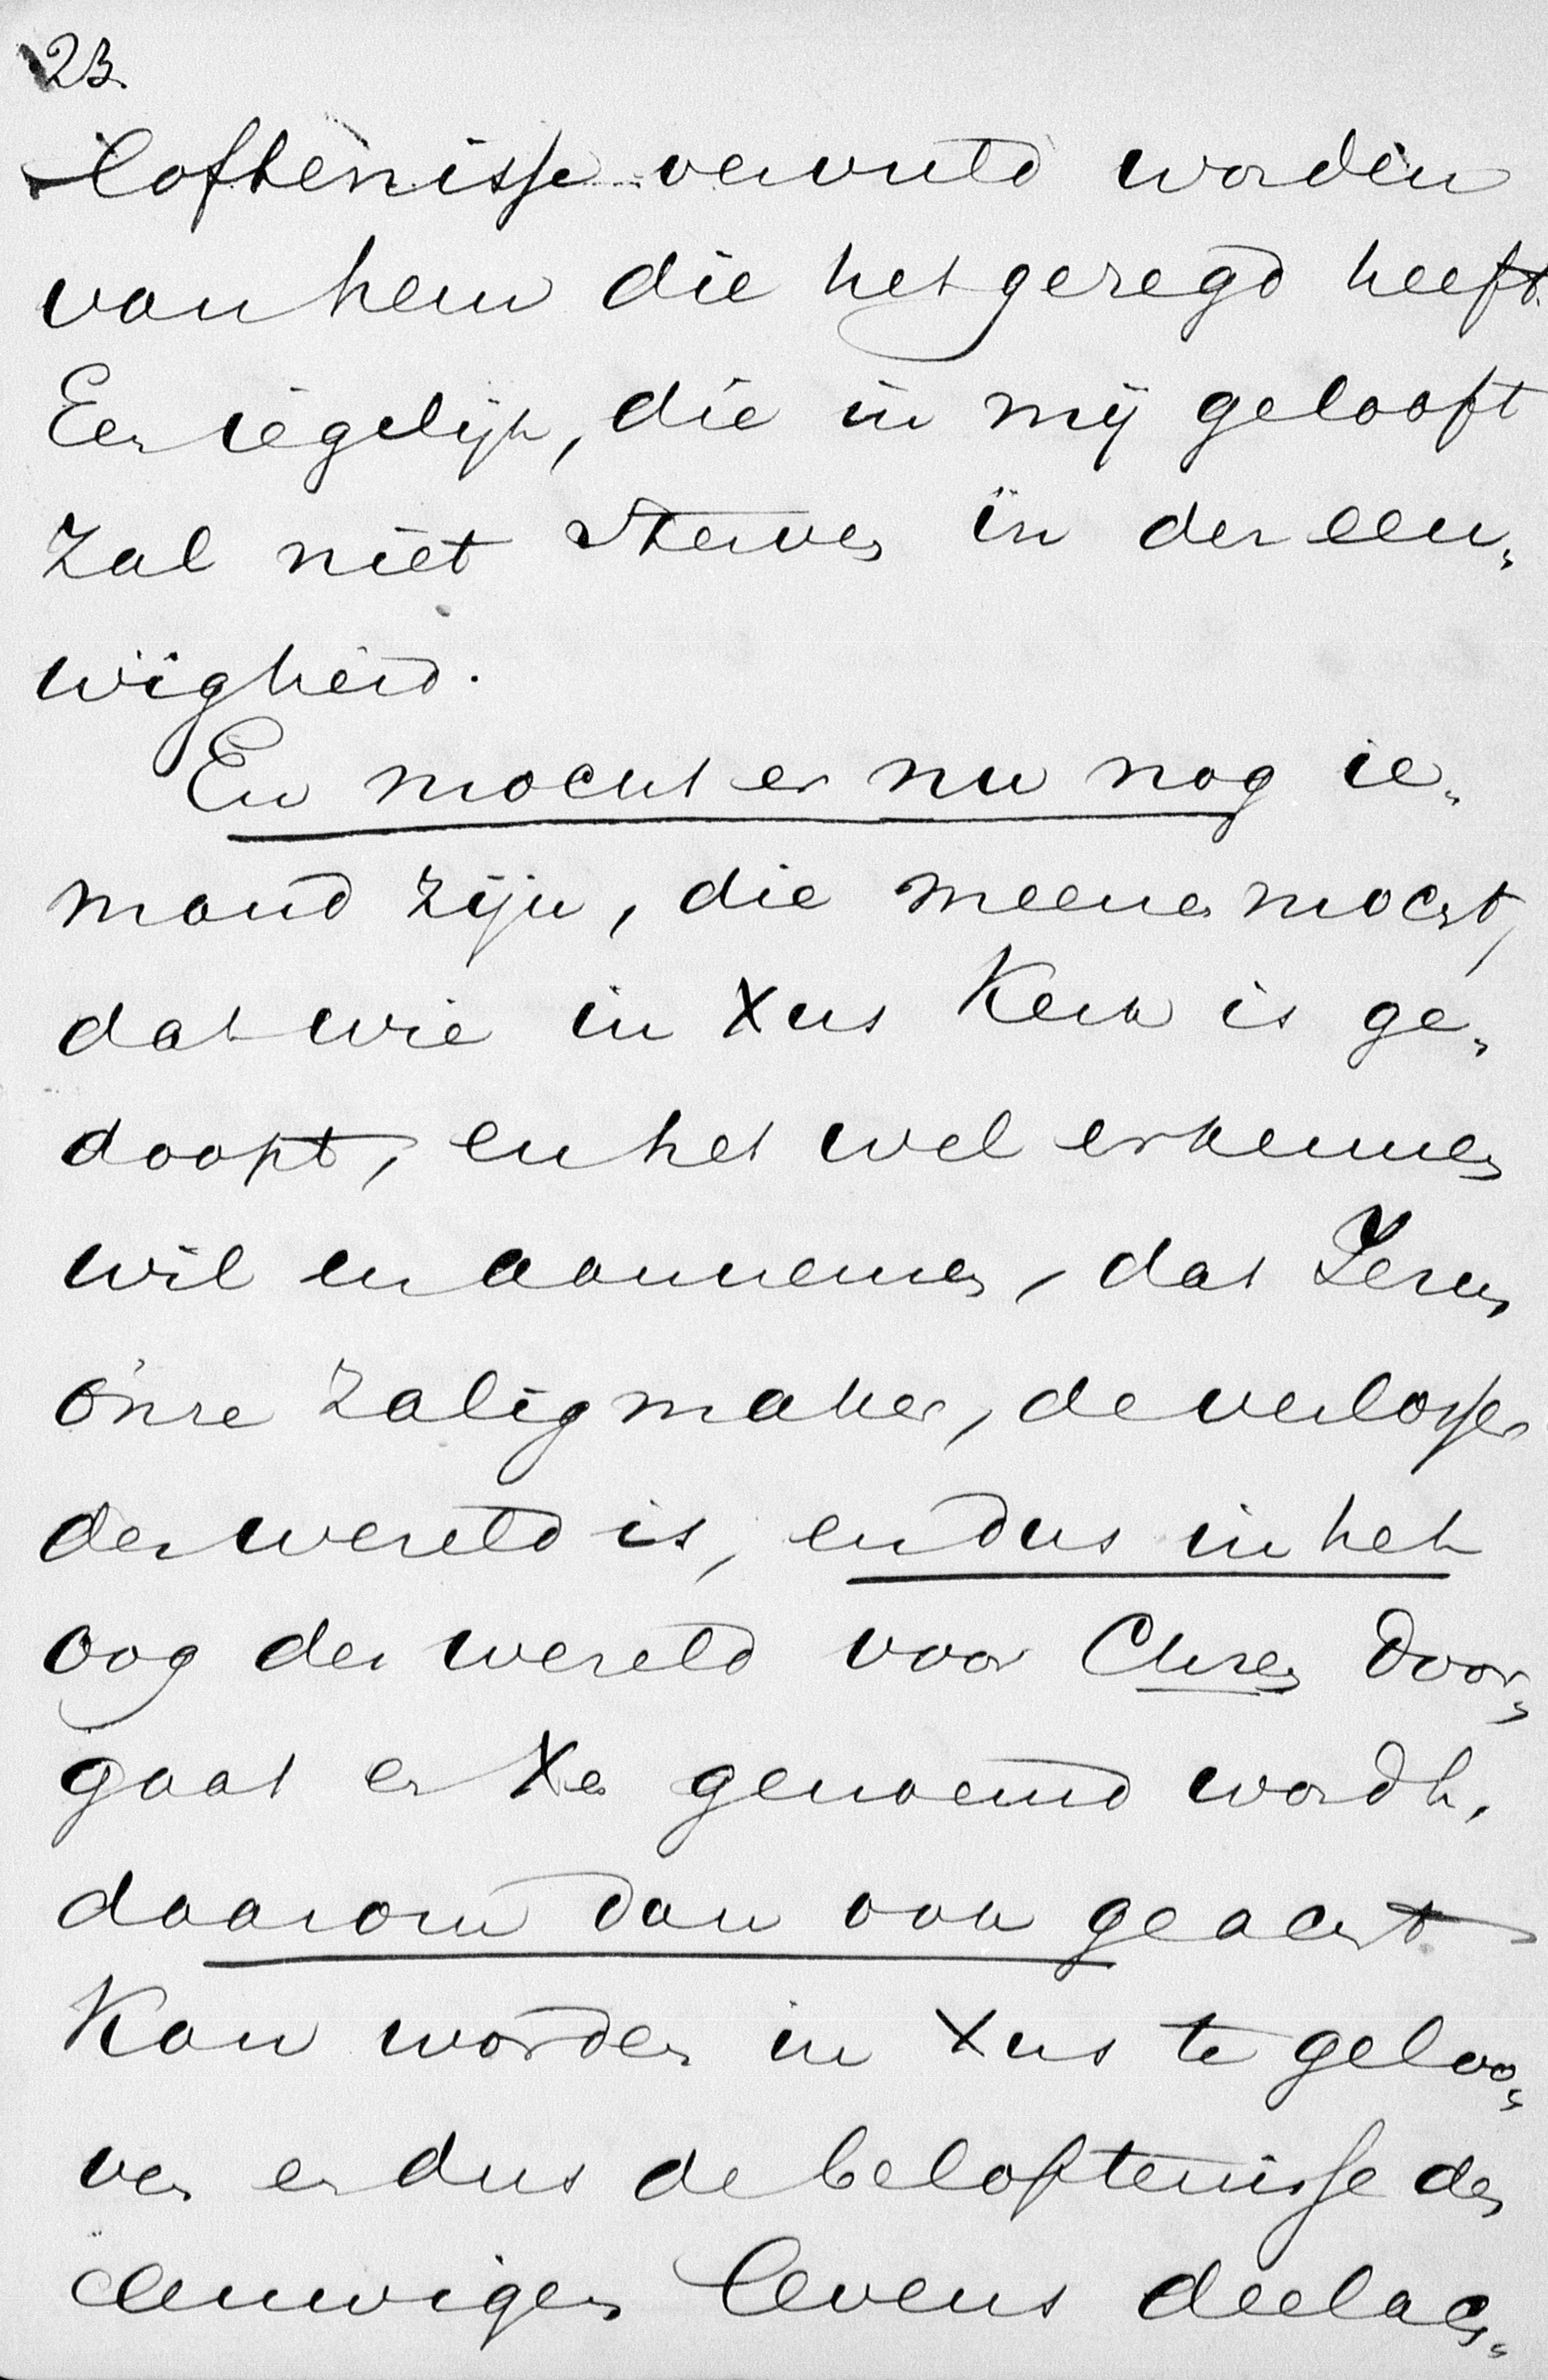 23.
loftenisse vervuld worden
van hem die het gezegd heeft.
Een iegelijk, die in mij gelooft
zal niet sterven in der eeu„
wigheid.
En mocht er nu nog ie„
mand zijn, die meenen mocht,
dat wie in Xus Kerk is ge„
doopt, en het wel erkennen
wil en aannemen, dat Jezus
onze Zaligmaker, de verlosser
der wereld is, en dus in het
oog der wereld voor Chrn door„
gaat en Xen genoemd wordt,
daarom dan ook geacht
kan worden in Xus te geloo„
ven en dus de beloftenisse des
eeuwigen levens deelach„